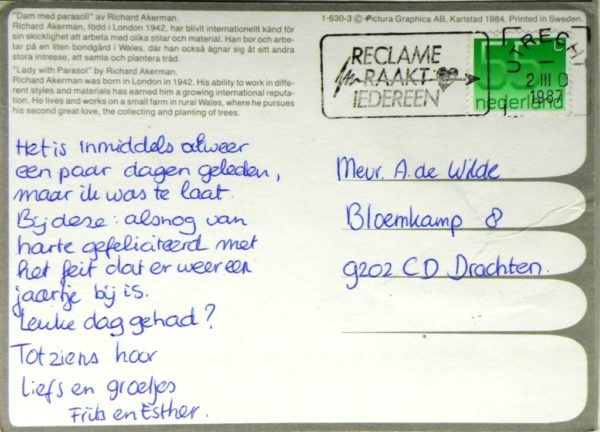 "Dam med parasoll" av Richard Akerman.
Richard Akerman, född i London 1942, har blivit internationellt känd för
sin skicklighet att arbeta med olika stilar och material. Han bor och arbe-
tar på en liten bondgård i Wales, där han också ägnar sig åt sitt andra
stora intresse, att samla och plantera träd.
"Lady with Parasol" by Richard Akerman.
Richard Akerman was born in London in 1942. His ability to work in differ-
ent styles and materials has earned him a growing international reputa-
tion. He lives and works on a small farm in rural Wales, where he pursues
his second great love, the collecting and planting of trees.
1-630-3 © Pictura Graphica AB, Karlstad 1984. Printed in Sweden.
RECLAME
RAAKT
IEDEREEN
UTRECHT
2 III
1987
55
nederland
Het is inmiddels alweer
een paar dagen geleden,
maar ik was te laat.
Bij deze: alsnog van
harte gefeliciteerd met
het feit dat er weer een
jaartje bij is.
Leuke dag gehad?
Tot ziens hoor
Liefs en groetjes
Frits en Esther.
Mevr. A. de Wilde
Bloemkamp 8
9202 CD Drachten.